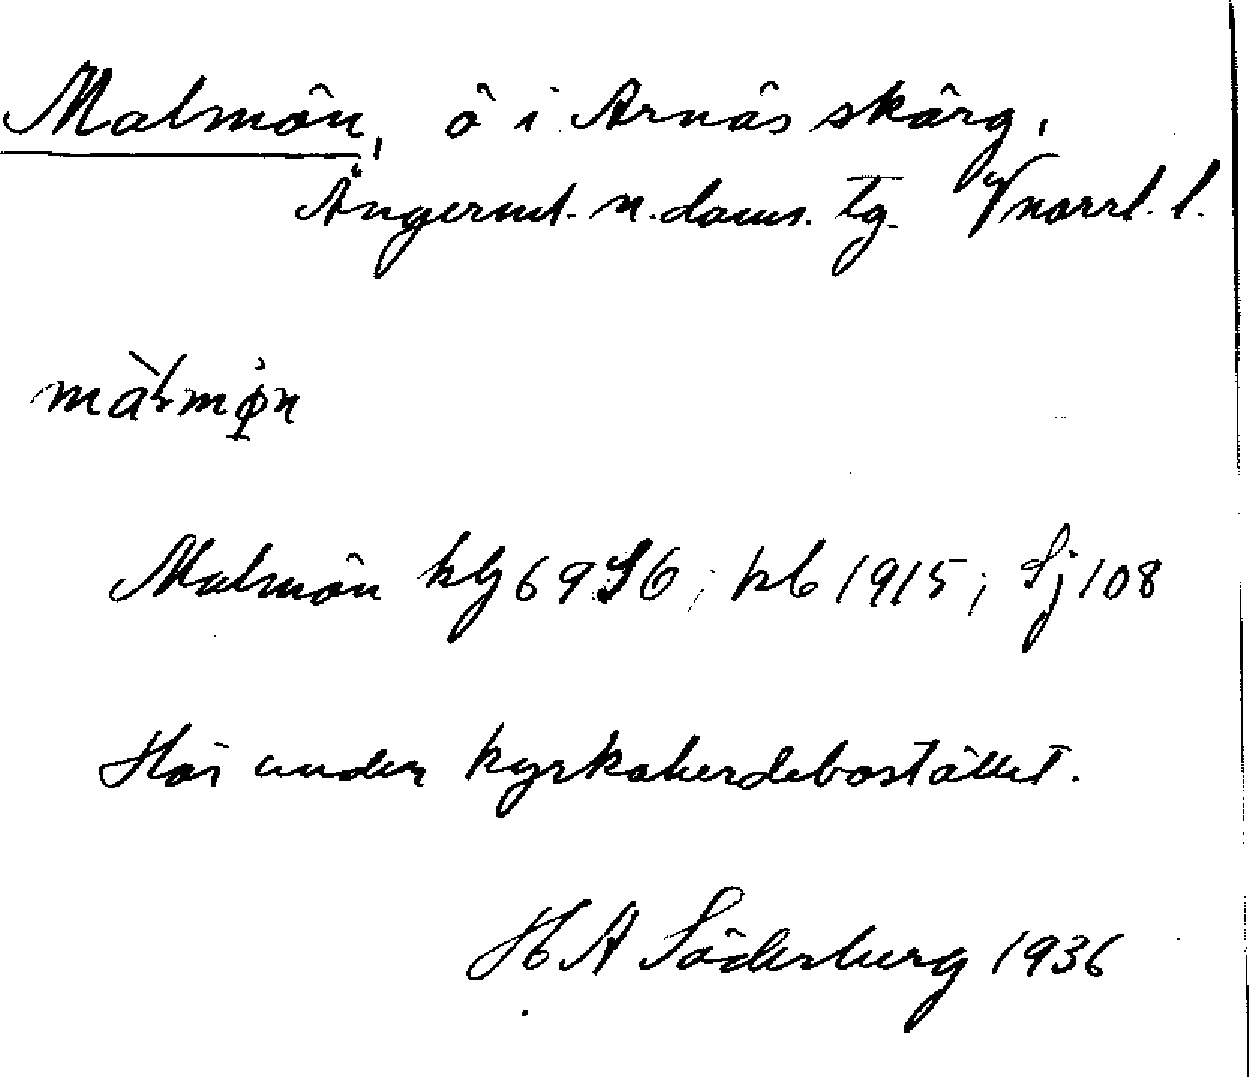 Malmön, ö i Arnäs skärg.,
Ångerml. n. doms. tg. Vnorrl. l.
màlmø̣n
Malmön kbl 69 S6; kb 1915; Sj 108
Hör under kyrkoherdebostället.
H A Söderberg 1936